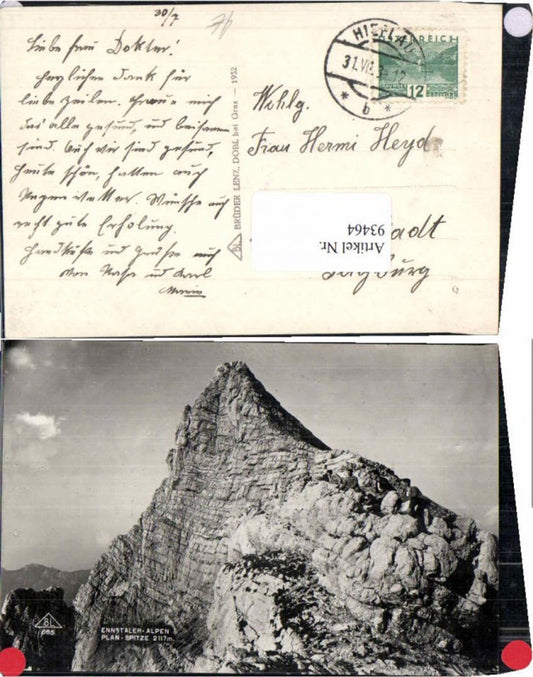 30/7
Liebe Frau Doktor.
Herzlichen Dank für
liebe Zeilen. Freue mich
das alle gesund, und beisammen
sind. Auch wir sind gesund,
Heute schön, hatten auch
Regen wetter. Wünsche auch
recht gute Erholung.
Handküsse und Grüsse auch
und Karl
BRÜDER LENZ, DOBL bei Graz — 1932
HIEFLAU
31.VII.3
* b *
ÖSTERREICH
12
Wohlg.
Frau Hermi Heyd
Artikel Nr.
93464
adt
Salzburg
665
ENNSTALER-ALPEN
PLAN-SPITZE 2117m.